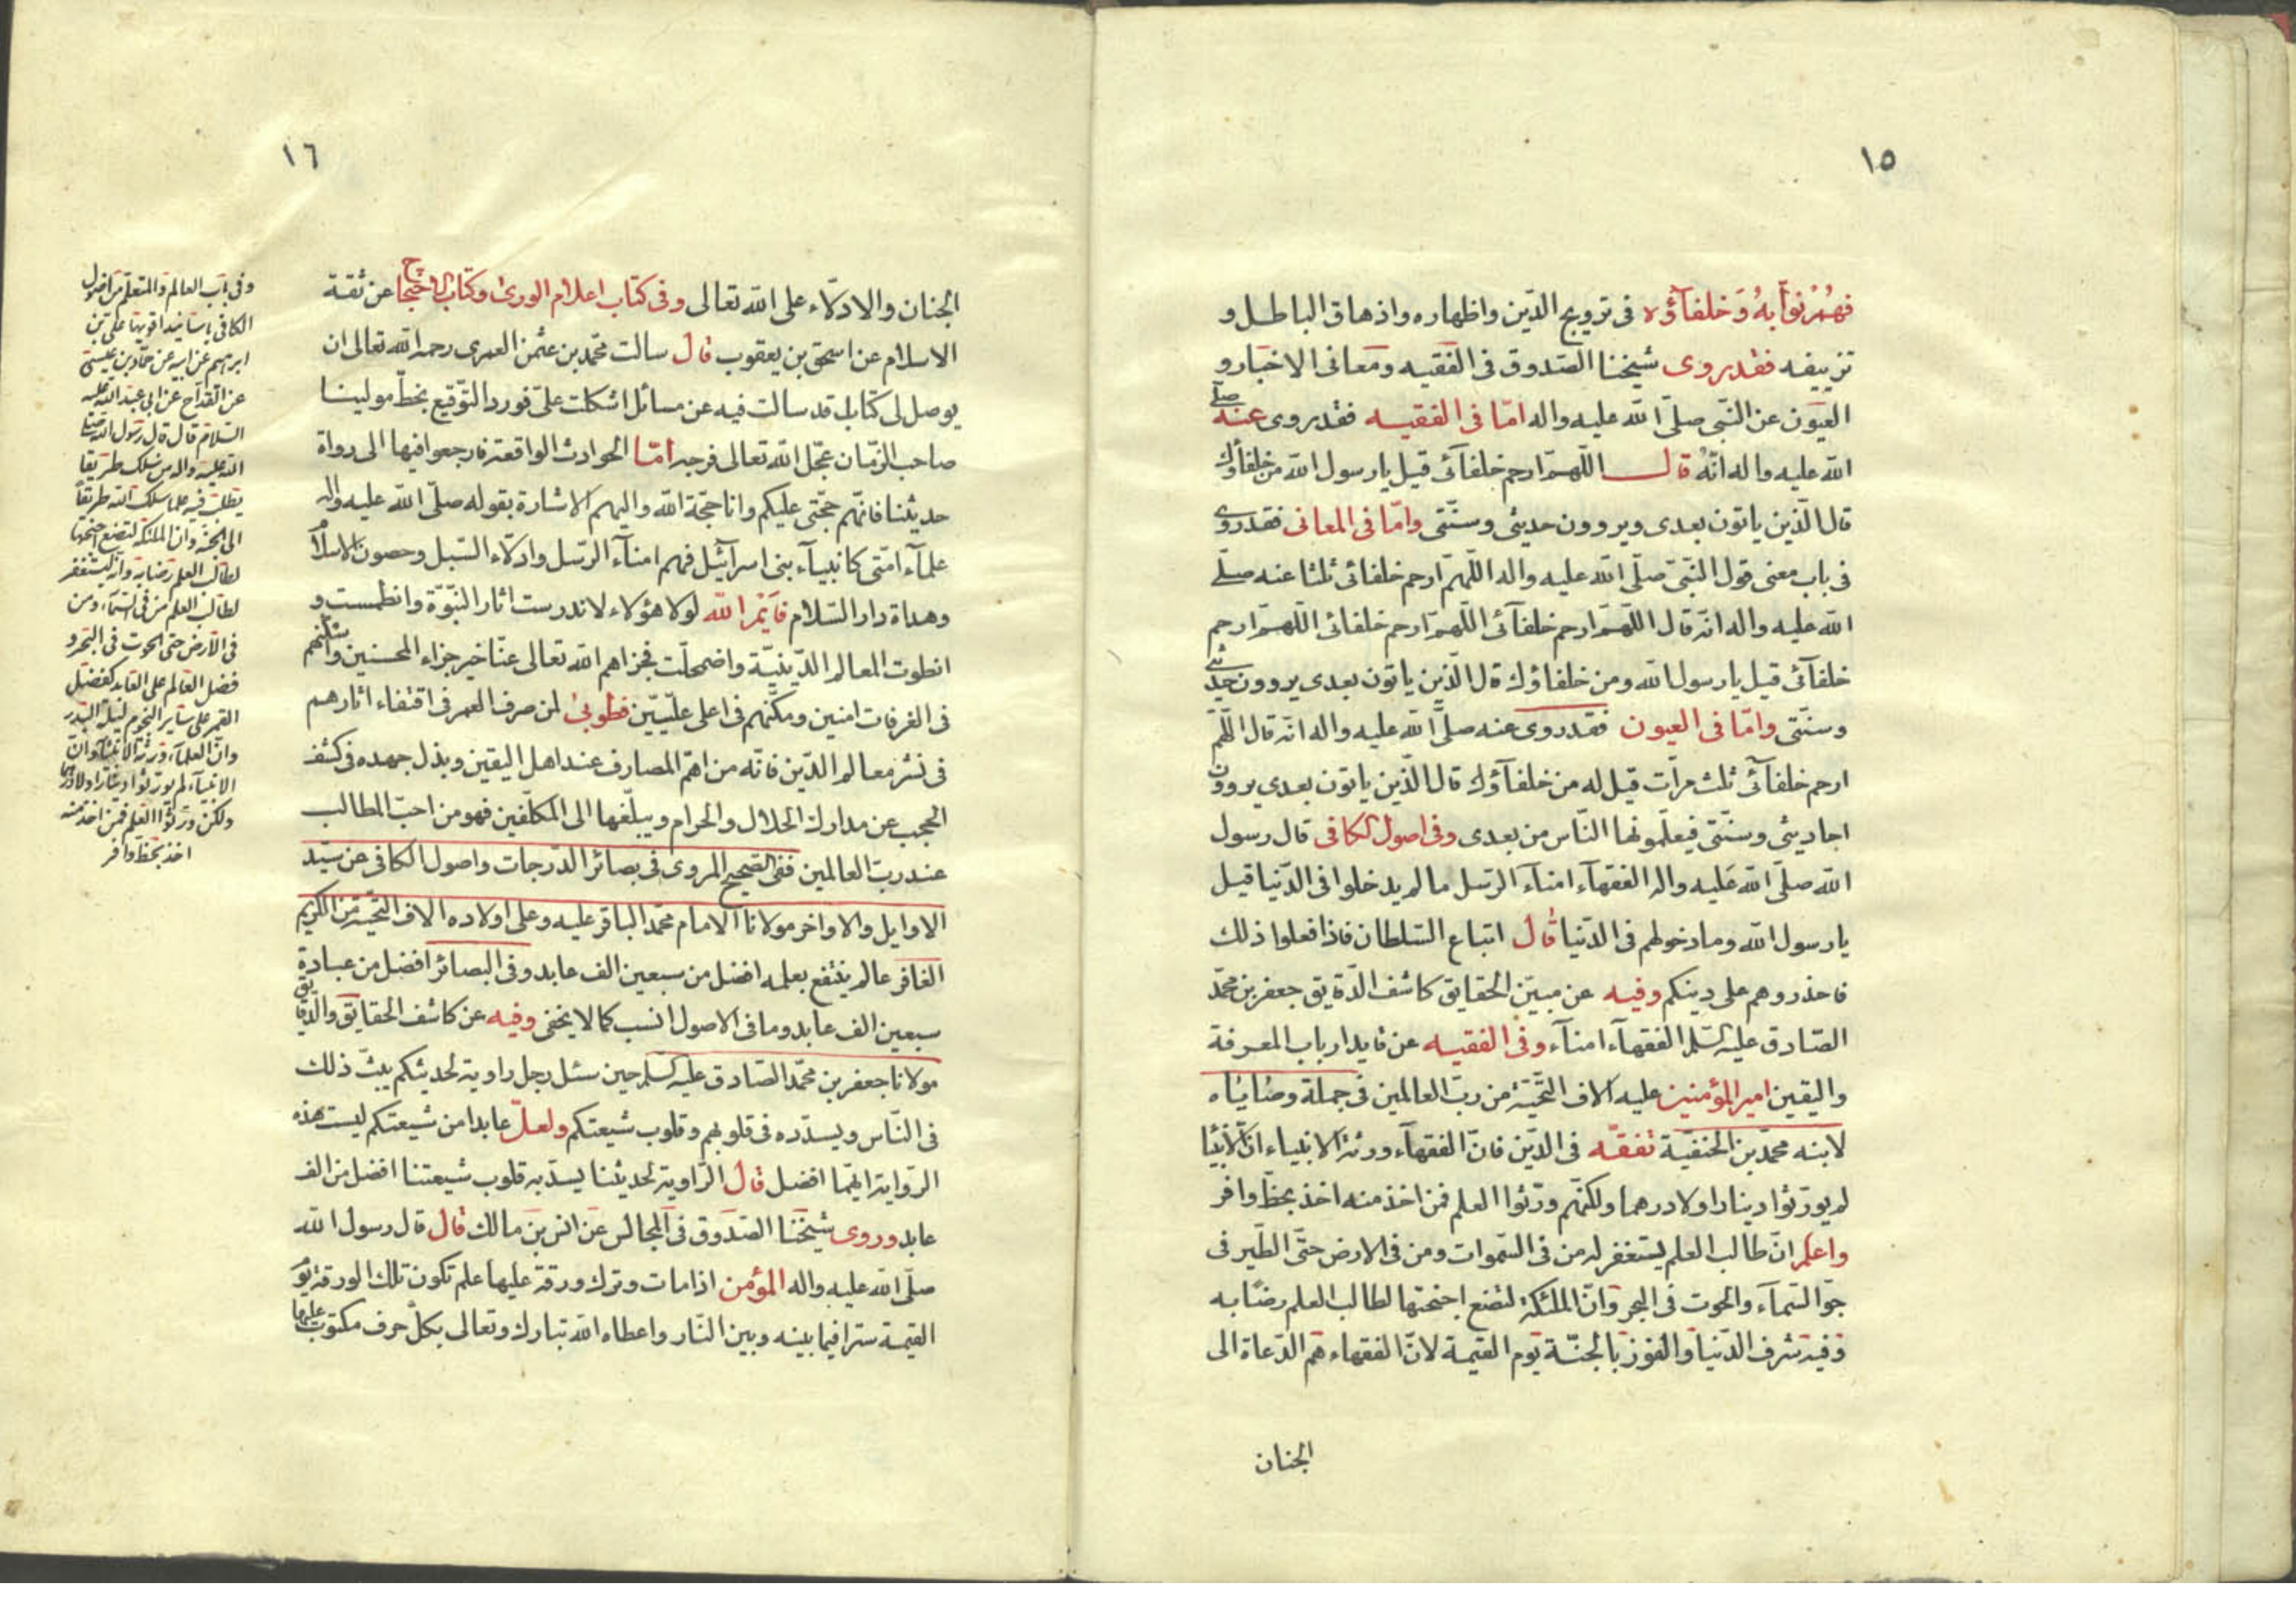 ١٥
فهم نوّابه وخلفاؤه فى ترويج الدّين واظهاره واذهاق الباطل و
تزييفه فقد روى شيخنا الصّدوق فى الفقيه ومعانى الاخبار و
العيون عن النّبى صلّى الله عليه واله امّا فى الفقيه فقد روى عنه صلى
الله عليه واله انّه قال اللّهمّ ارحم خلفآئى قيل يا رسول الله من خلفاؤك
قال الّذين ياتون بعدى ويروون حديثى وسنّتى وامّا فى المعانى فقد روى
فى باب معنى قول النّبىّ صلّى الله عليه واله اللّهمّ ارحم خلفائى ثلثا عنه صلّى
الله عليه واله انّه قال اللّهمّ ارحم خلفآئى اللّهمّ ارحم خلفائى اللّهمّ ارحم
خلفآئى قيل يا رسول الله ومن خلفاؤك قال الّذين ياتون بعدى يروون حديثى
وسنّتى وامّا فى العيون فقد روى عنه صلّى الله عليه واله انّه قال اللّهمّ
ارحم خلفآئى ثلث مرّات قيل له من خلفآؤك قال الّذين ياتون بعدى يروون
احاديثى وسنّتى فيعلّمونها النّاس من بعدى وفى اصول الكافى قال رسول
الله صلّى الله عليه واله الفقهآء امنآء الرّسل ما لم يدخلوا فى الدّنيا قيل
يا رسول الله وما دخولهم فى الدّنيا قال اتباع السّلطان فاذا فعلوا ذلك
فاحذروهم على دينكم وفيه عن مبيّن الحقايق كاشف الدّقايق جعفر بن محمّد
الصّادق عليه السّلم الفقهآء امنآء وفى الفقيه عن قايد ارباب المعرفة
واليقين امير المؤمنين عليه الاف التّحيّة من ربّ العالمين فى جملة وصاياه
لابنه محمّد بن الحنفيّة تفقّه فى الدّين فانّ الفقهآء ورثة الانبياء انّ الانبيا
لم يورّثوا دينارا ولا درهما ولكنّهم ورّثوا العلم فمن اخذ منه اخذ بحظّ وافر
واعلم انّ طالب العلم يستغفر له من فى السّموات ومن فى الارض حتّى الطّير فى
جوّ السّمآء والحوت فى البحر وانّ الملئكة لتضع اجنحتها لطالب العلم رضًا به
وفيه شرف الدّنيا والفوز بالجنّة يوم القيمة لانّ الفقهاء هم الدّعاة الى
الجنان
١٦
الجنان والادلّاء على الله تعالى وفى كتاب اعلام الورى وكتاب الاحتجاج عن ثقة
الاسلام عن اسحق بن يعقوب قال سالت محمّد بن عثمن العمرى رحمه الله تعالى ان
يوصل لى كتابا قد سالت فيه عن مسائل اشكلت علىّ فورد التّوقيع بخطّ مولينا
صاحب الزّمان عجّل الله تعالى فرجه امّا الحوادث الواقعة فارجعوا فيها الى رواة
حديثنا فانّهم حجّتى عليكم وانا حجّة الله واليهم الاشارة بقوله صلّى الله عليه واله
علمآء امّتى كانبيآء بنى اسرآئيل فهم امنآء الرّسل وادلّاء السّبل وحصون الاسلام
وهداة دار السّلام فايم الله لولا هؤلاء لاندرست اثار النّبوّة وانطمست و
انطوت المعالم الدّينيّة واضمحلّت فجزاهم الله تعالى عنّا خير جزاء المحسنين واسكنهم
فى الغرفات امنين ومكّنهم فى اعلى علّيّين فطوبى لمن صرف العمر فى اقتفاء اثارهم
فى نشر معالم الدّين فانّه من اهمّ المصارف عند اهل اليقين وبذل جهده فى كشف
الحجب عن مدارك الحلال والحرام ويبلّغها الى المكلّفين فهو من احبّ المطالب
عند ربّ العالمين ففى الصّحيح المروى فى بصائر الدّرجات واصول الكافى عن سيّد
الاوايل والاواخر مولانا الامام محمّد الباقر عليه وعلى اولاده الاف التّحيّة من الكريم
الغافر عالم ينتفع بعلمه افضل من سبعين الف عابد وفى البصائر افضل من عبادة
سبعين الف عابد وما فى الاصول انسب كما لا يخفى وفيه عن كاشف الحقايق والدّقايق
مولانا جعفر بن محمّد الصّادق عليه السّلم حين سئل رجل راوية لحديثكم يبثّ ذلك
فى النّاس ويسدّده فى قلوبهم وقلوب شيعتكم ولعلّ عابدا من شيعتكم ليست هذه
الرّواية ايّهما افضل قال الرّاوية لحديثنا يسدّ به قلوب شيعتنا افضل من الف
عابد وروى شيخنا الصّدوق فى المجالس عن انس بن مالك قال قال رسول الله
صلّى الله عليه واله المؤمن اذا مات وترك ورقة عليها علم تكون تلك الورقة يوم
القيمة سترا فيما بينه وبين النّار واعطاه الله تبارك وتعالى بكلّ حرف مكتوب عليها
وفى باب العالم والمتعلّم من اصول
الكافى باسانيد اقويها على بن
ابرهيم عن ابيه عن حمّاد بن عيسى
عن القدّاح عن ابى عبد الله عليه
السّلام قال قال رسول الله صلى
الله عليه واله من سلك طريقا
يطلب فيه علما سلك الله طريقا
الى الجنّة وان الملئكة لتضع اجنحتها
لطالب العلم رضا به وانّه يستغفر
لطالب العلم من فى السّمآء ومن
فى الارض حتى الحوت فى البحر و
فضل العالم على العابد كفضل
القمر على ساير النجوم ليلة البدر
وانّ العلمآء ورثة الانبياء وان
الانبياء لم يورّثوا دينارا ولا درهما
ولكن ورّثوا العلم فمن اخذ منه
اخذ بحظ وافر